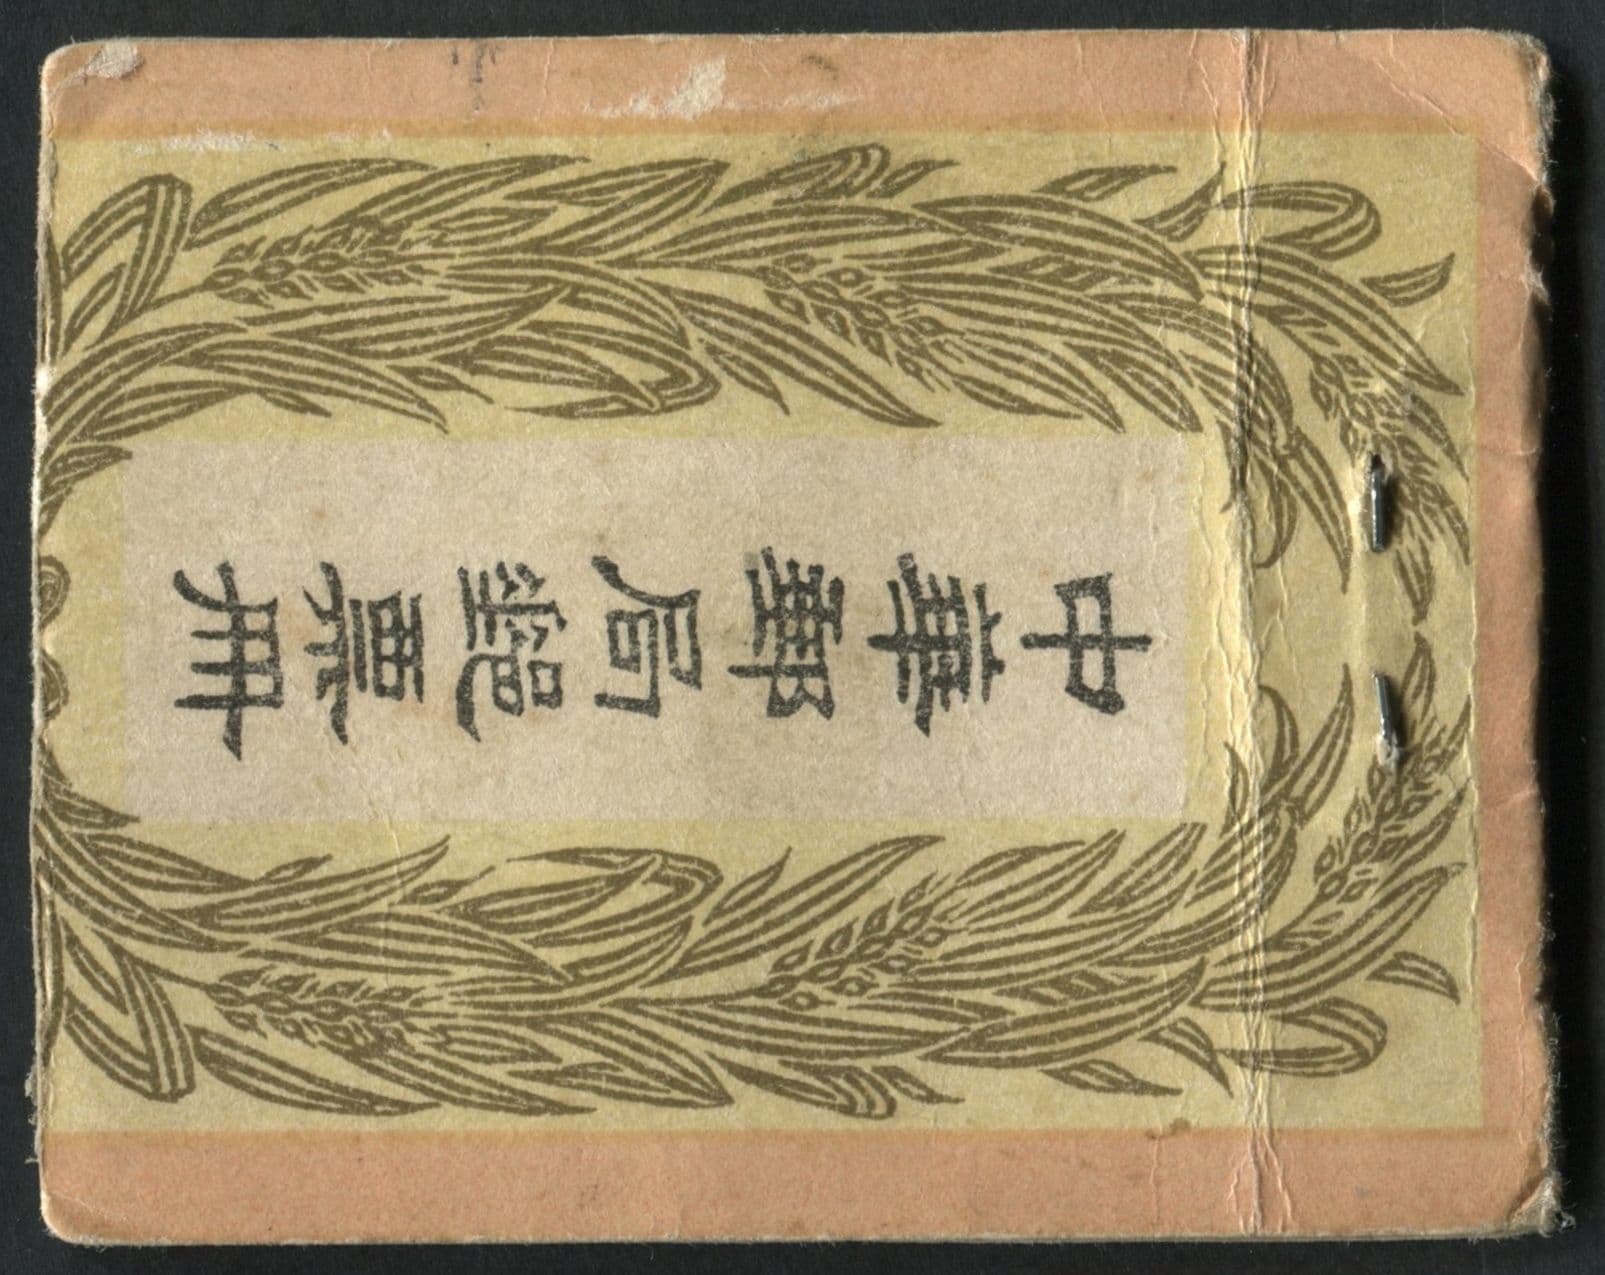 中華郵局票冊